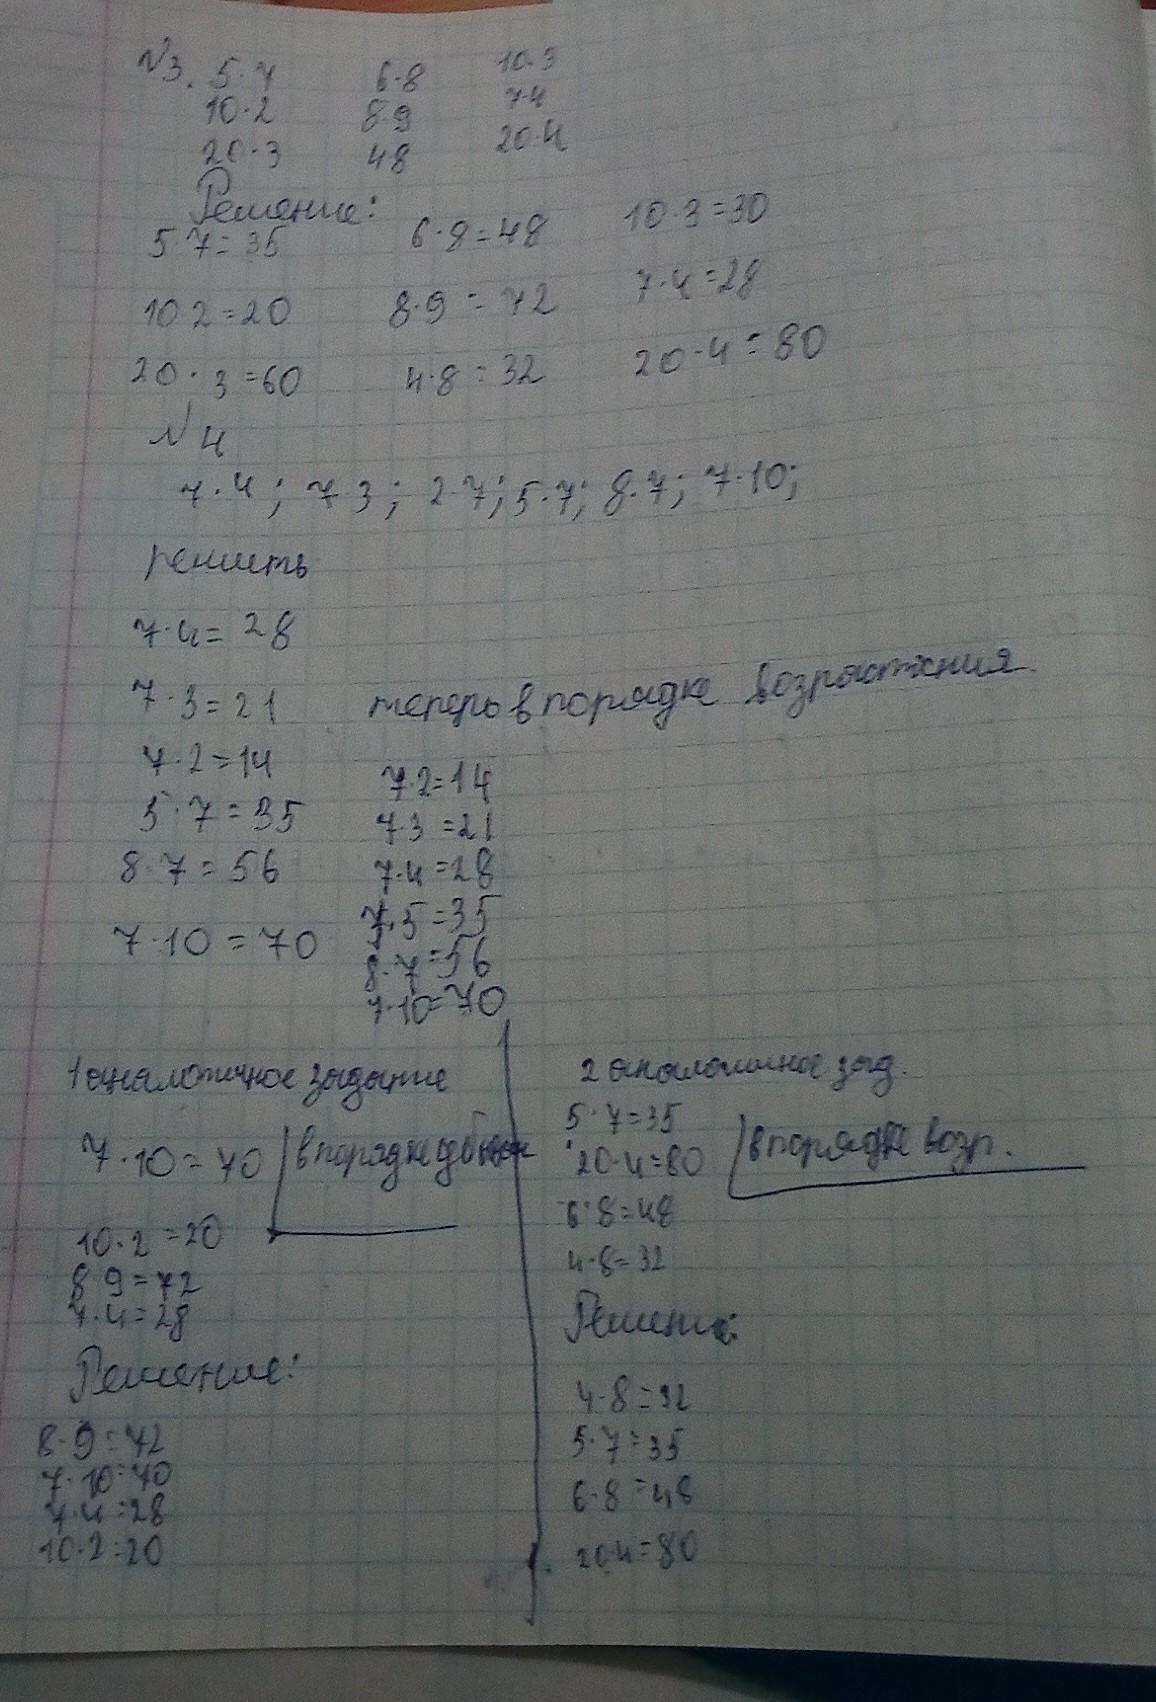 №3. 5·7 6·8 10·3
10·2 8·9 7·4
20·3 4·8 20·4
Решение:
5·7=35 6·8=48 10·3=30
10·2=20 8·9=72 7·4=28
20·3=60 4·8=32 20·4=80
№4
7·4; 7·3; 2·7; 5·7; 8·7; 7·10;
решить
7·4=28
7·3=21 теперь в порядке возрастания
7·2=14 7·2=14
5·7=35 7·3=21
8·7=56 7·4=28
7·5=35
7·10=70 8·7=56
7·10=70
1 аналогичное задание
7·10=70 в порядке убыван
10·2=20
8·9=72
7·4=28
Решение:
8·9=72
7·10=70
7·4=28
10·2=20
2 аналогичное зад.
5·7=35
20·4=80 в порядке возр.
6·8=48
4·8=32
Решение:
4·8=32
5·7=35
6·8=48
20·4=80